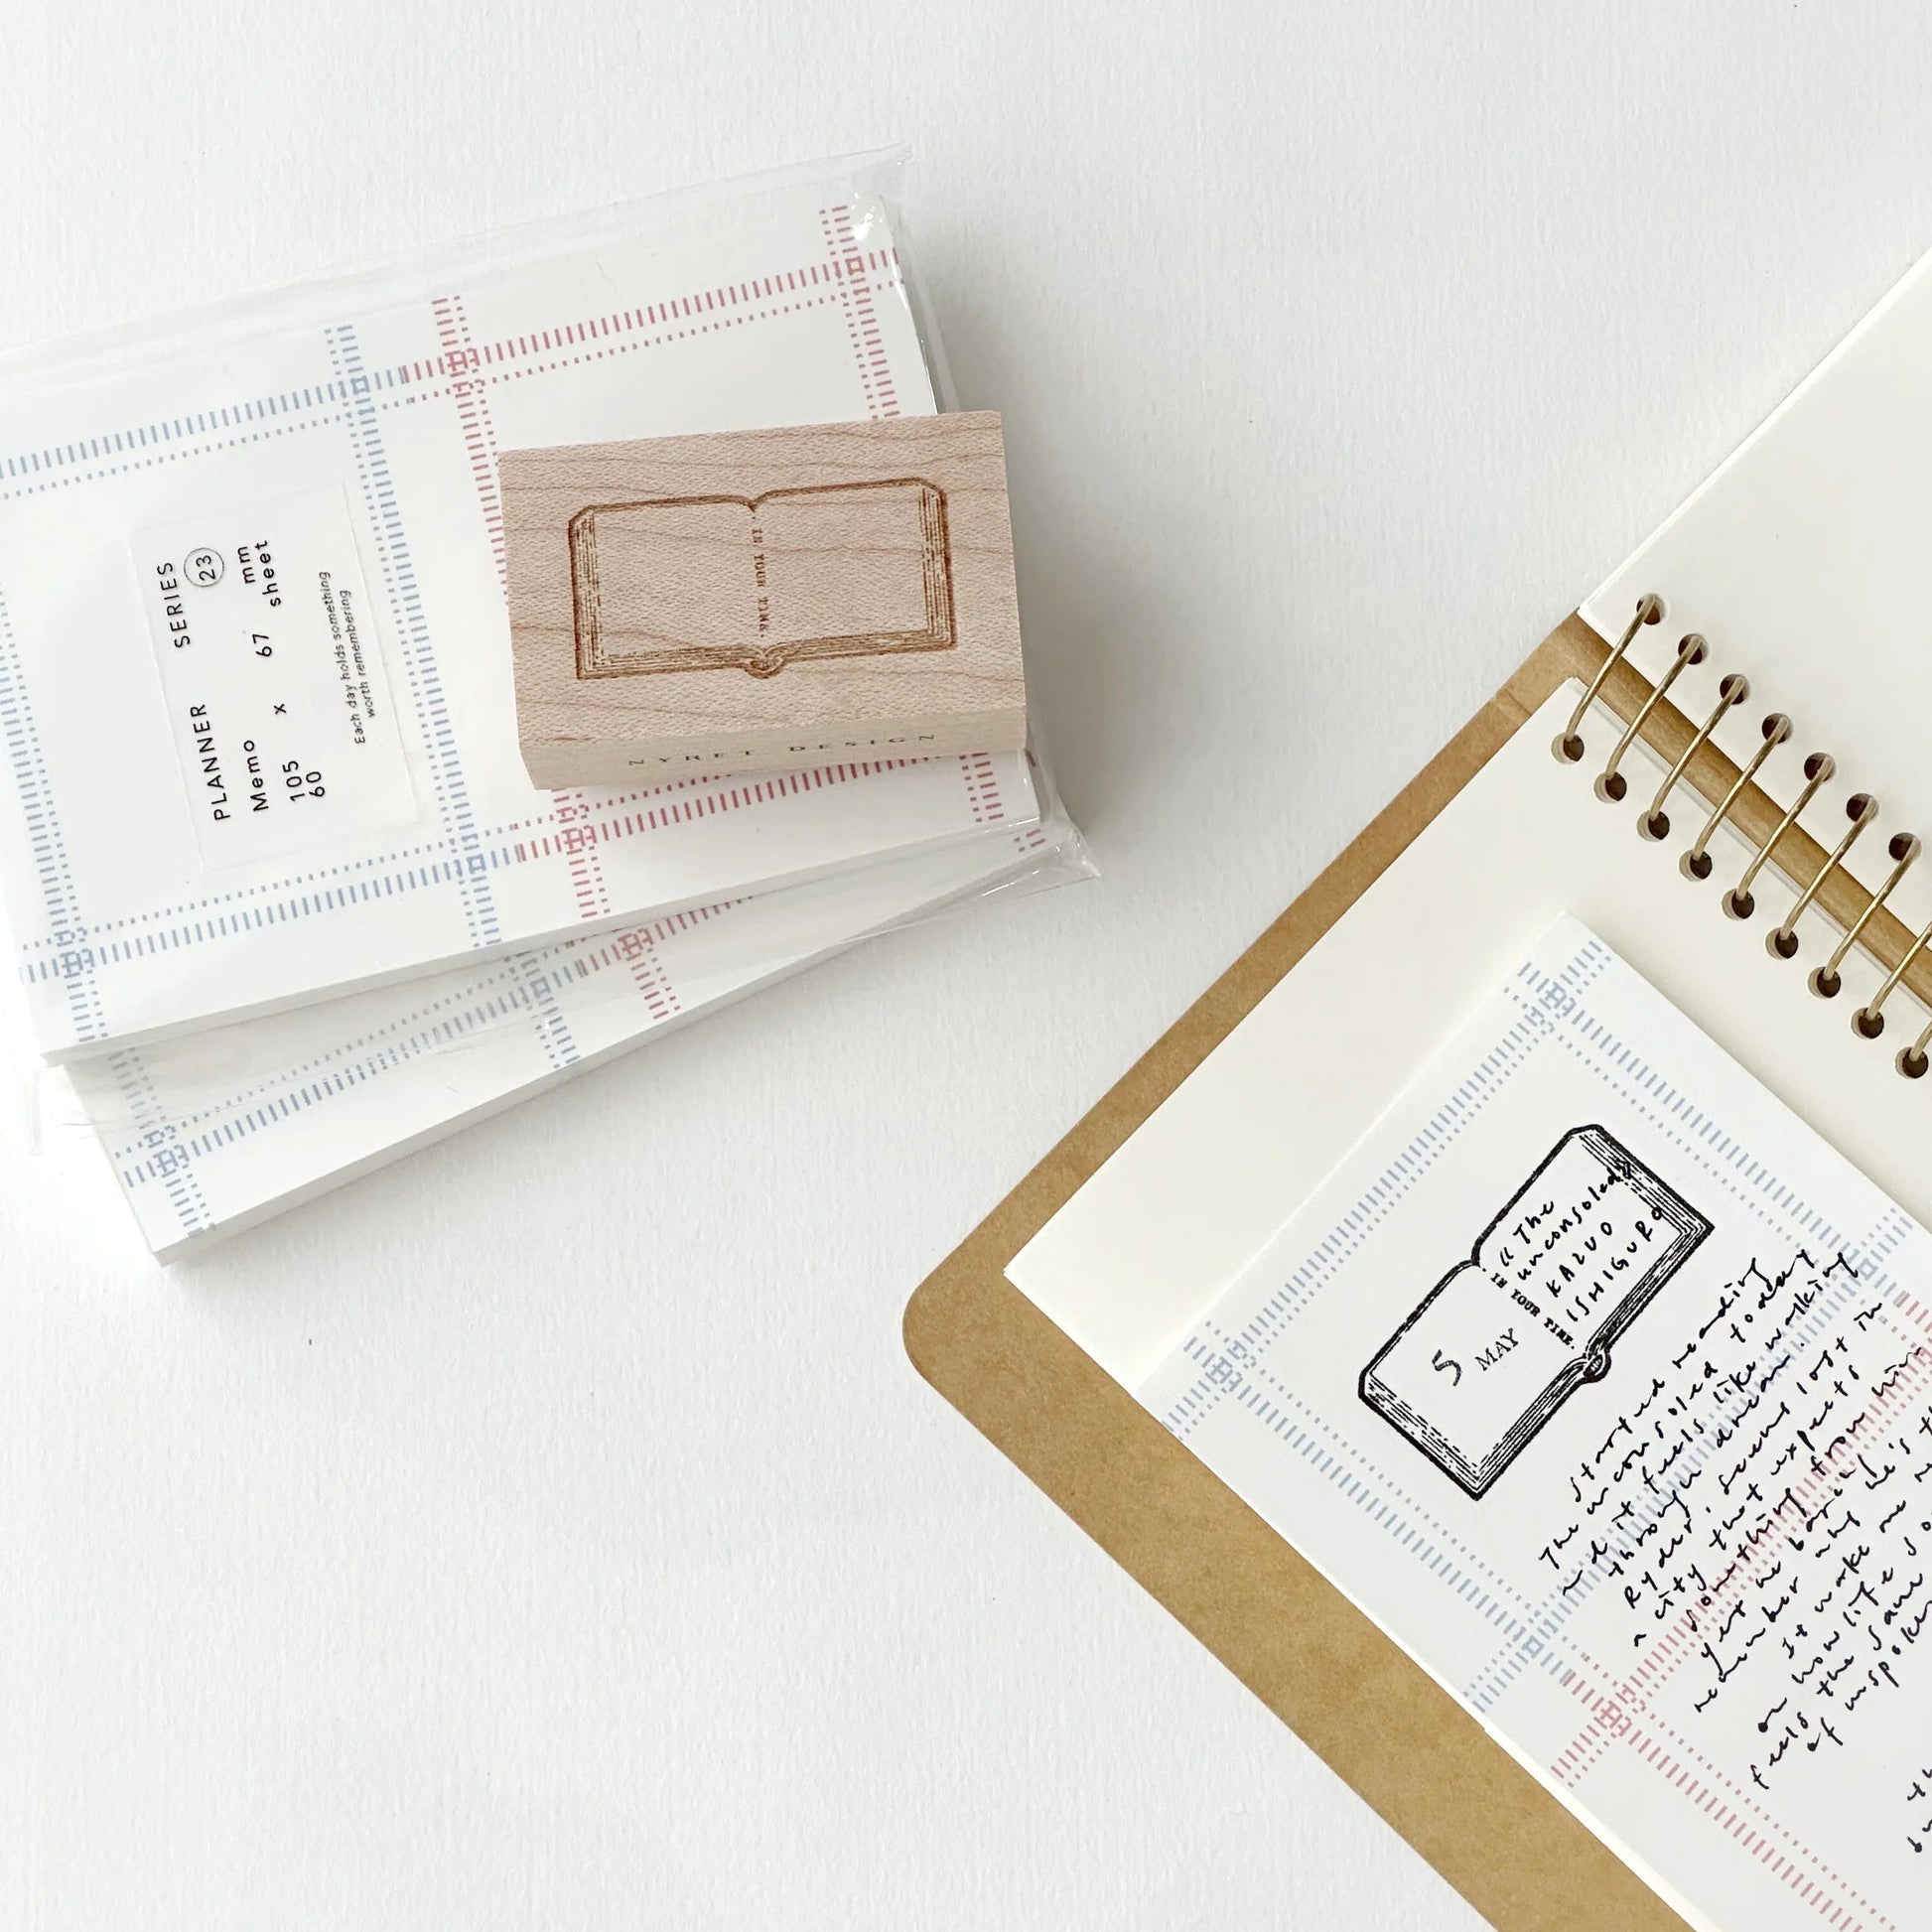 PLANNER SERIES
23
Memo
105 x 67 mm
60 sheet
Each day holds something
worth remembering
IN YOUR TIME.
NYRET DESIGN
5 MAY
IN YOUR TIME
《The
unconsoled》
KAZUO
ISHIGURO
started reading
The unconsoled today
and it feels like walking
through a dream.
Ryder, seems lost in
a city that expects
something from him
yet he barely
remember why he's
It make me
on how life
feels the same
of unspoken